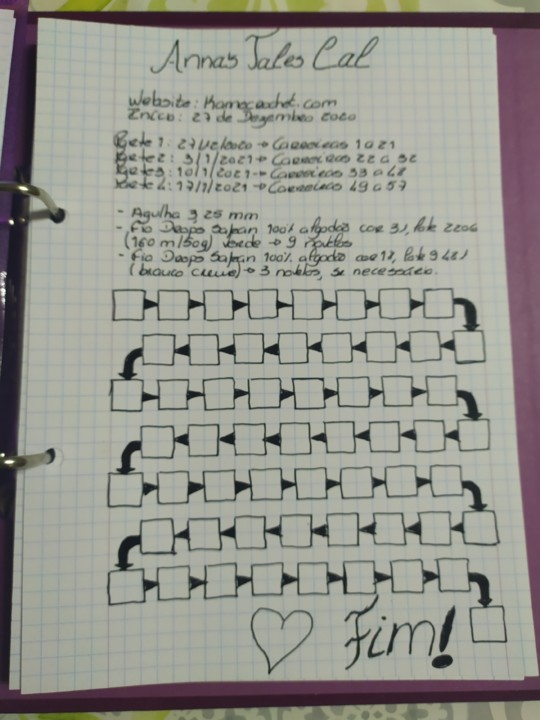 Annas Tales Cal
Website: Kamecrochet.com
Início: 27 de Dezembro 2020
Parte 1: 27/12/2020 → Carreiras 1 a 21
Parte 2: 3/1/2021 → Carreiras 22 a 32
Parte 3: 10/1/2021 → Carreiras 33 a 48
Parte 4: 17/1/2021 → Carreiras 49 a 57
- Agulha 3,25 mm
- Fio Drops Safran 100% algodão cor 31, lote
(160 m/50g) verde → 9 novelos
- Fio Drops Safran 100% algodão cor 17, lote
(branco creme) → 3 novelos, se necessário.
Fim!